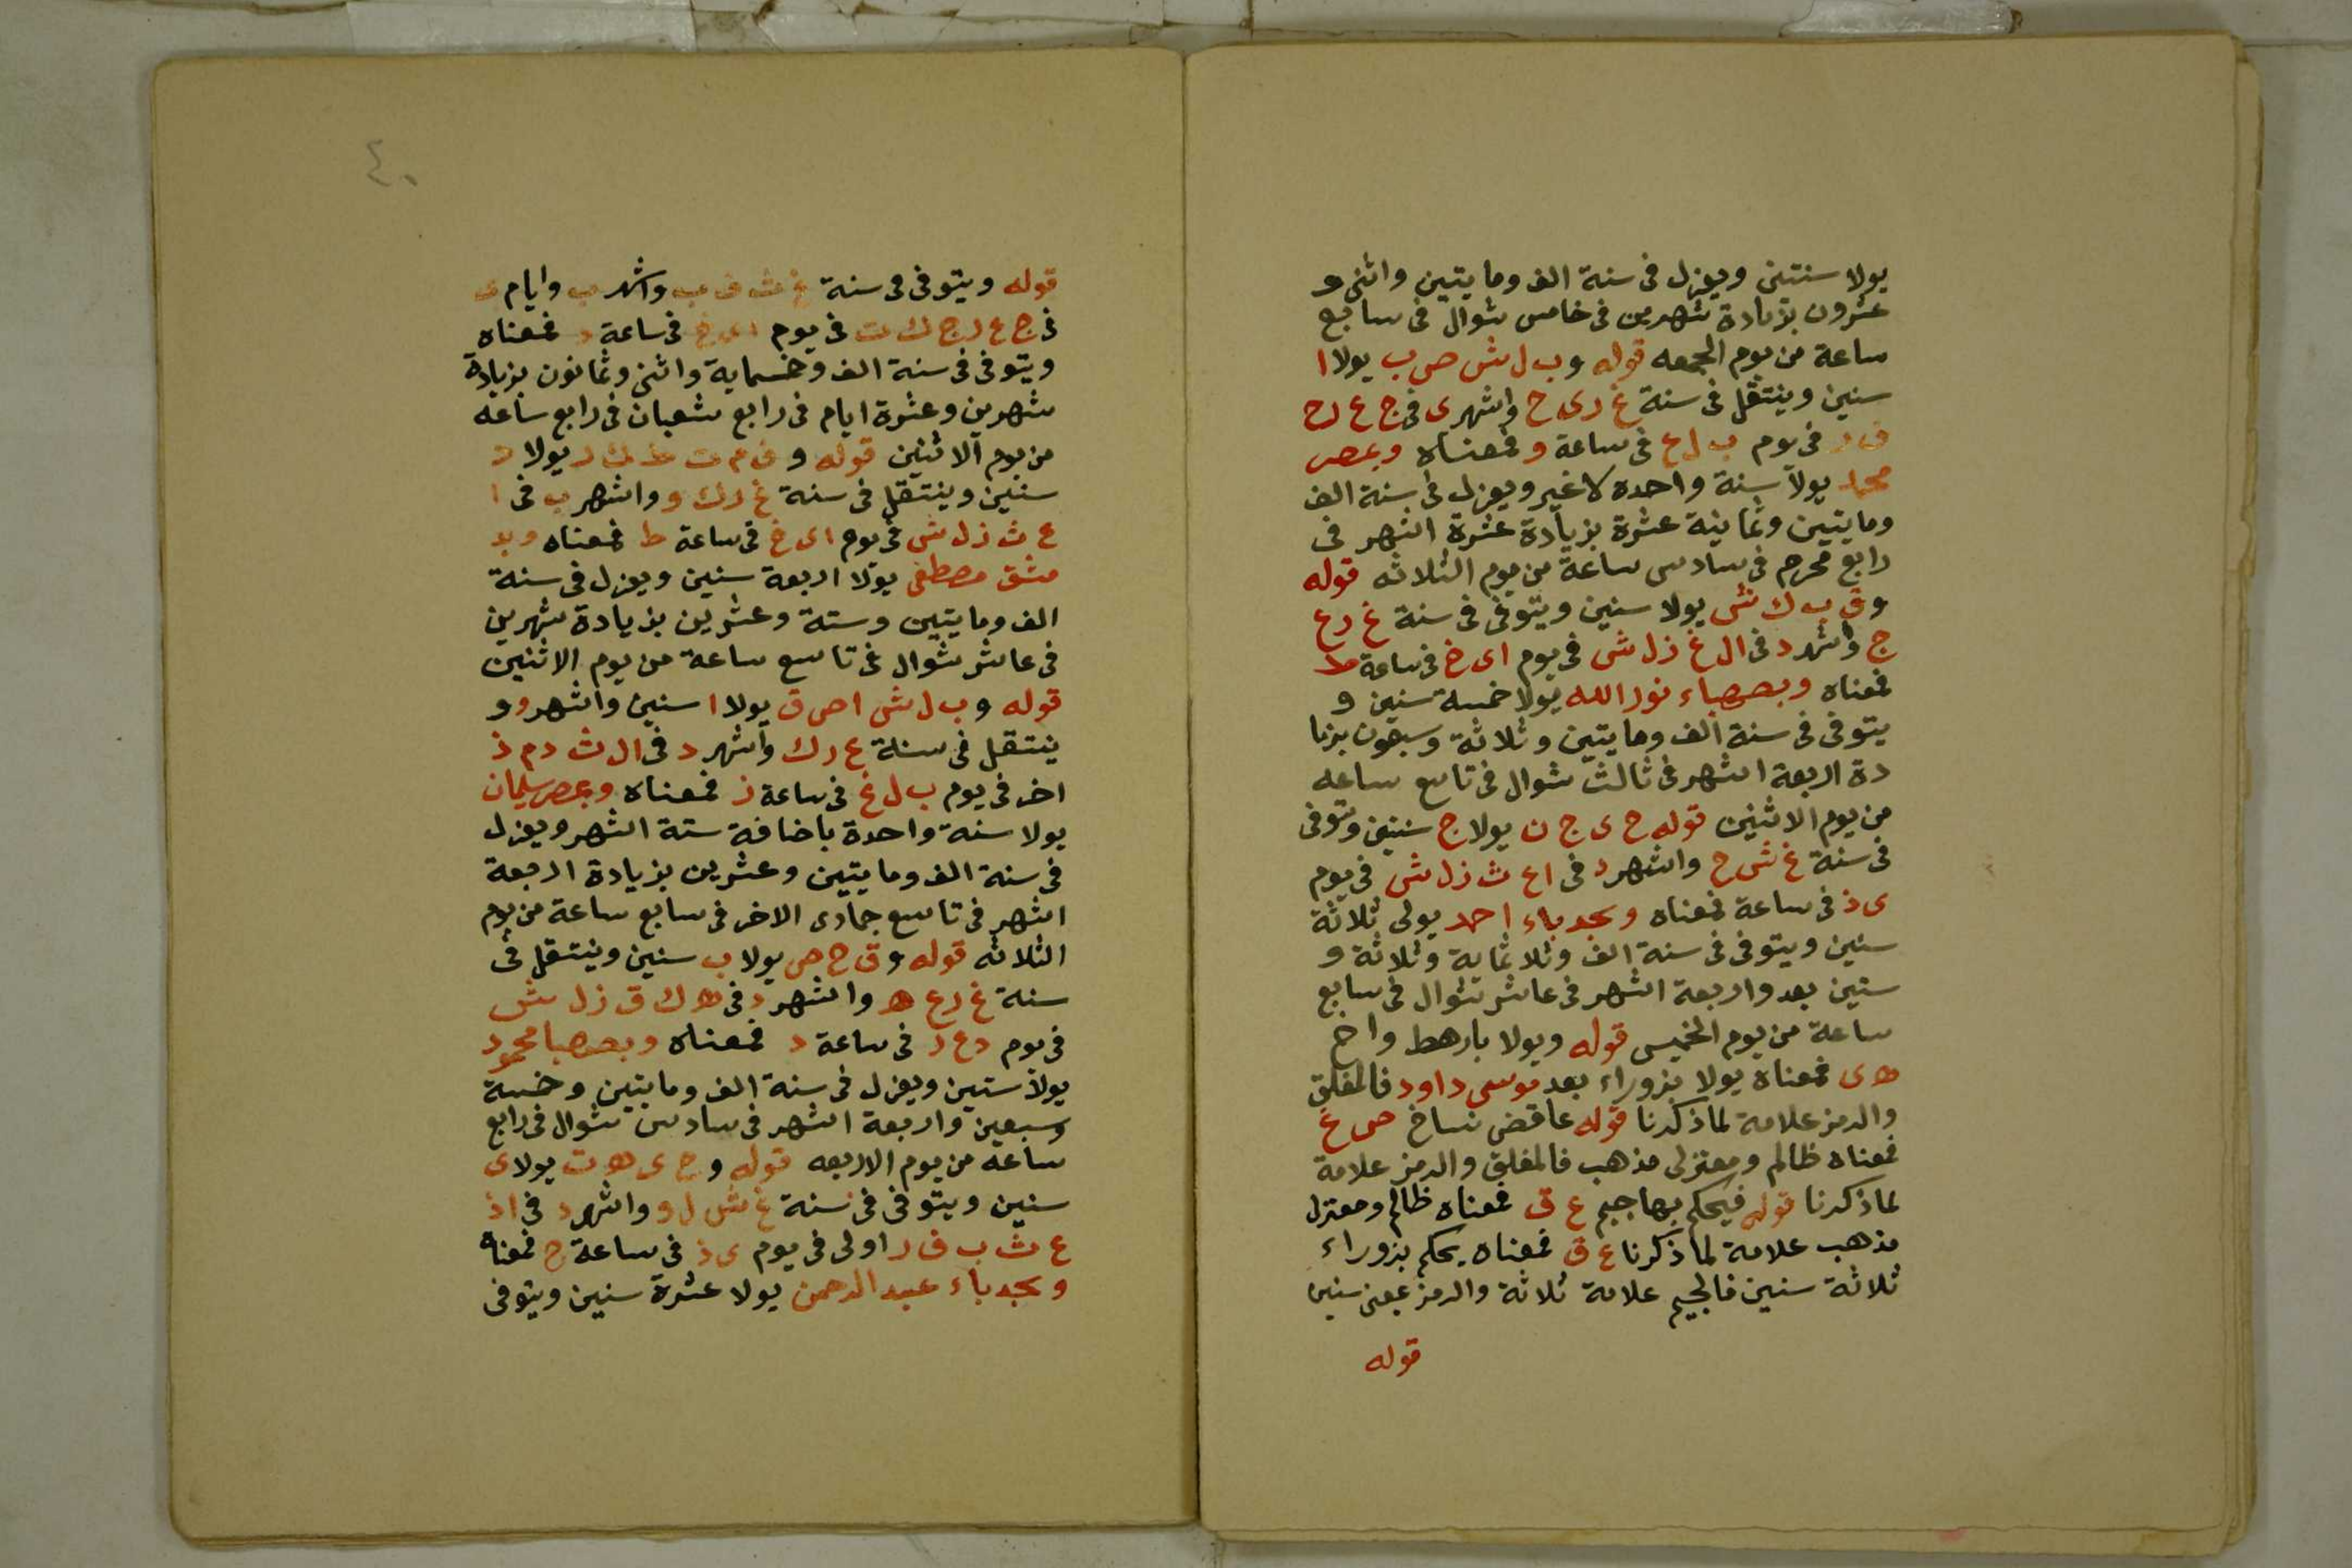 يولا سنتين ويعزل فى سنة الف ومايتين واثنى و
عشرون بزيادة شهرين فى خامس شوال فى سابع
ساعة من يوم الجمعه قوله وب ل ش ص ب يولا ا
سنين وينتقل فى سنة غ ر ى ح واشهر ى فى ج ع ر ح
ف د فى يوم ب ل ع فى ساعة و فمعناه وبمصر
محمد يولا سنة واحدة لا غير ويعزل فى سنة الف
ومايتين وثمانية عشرة بزيادة عشرة اشهر فى
رابع محرم فى سادس ساعة من يوم الثلاثه قوله
وق ب ك ش يولا سنين ويتوفى فى سنة غ ر ع
ج واشهر د فى ال غ ز ل ش فى يوم اى خ فى ساعة ط
فمعناه وبصهباء نور الله يولا خمسة سنين و
يتوفى فى سنة الف ومايتين وثلاثة وسبعون بزيا
دة اربعة اشهر فى ثالث شوال فى تاسع ساعه
من يوم الاثنين قوله ح ى ج ن يولا ج سنين وتوفى
فى سنة غ ش ح واشهر د فى ا ع ث ز ل ش فى يوم
ى ذ فى ساعة فمعناه وبجدباء احمد يولى ثلاثة
سنين ويتوفى فى سنة الف وثلاثماية وثلاثة و
سنين بعد واربعة اشهر فى عاشر شوال فى سابع
ساعة من يوم الخميس قوله ويولا بارهط واخ
ه ى فمعناه يولا بزوراء بعد موسى داود فالمغلق
والرمز علامة لماذكرنا قوله عاقض نساخ ص غ
فمعناه ظالم ومعتزلى مذهب فالمغلق والرمز علامة
لماذكرنا قوله فيحكم بهاجيم ع ق فمعناه ظالم ومعتزل
مذهب علامة لما ذكرنا ع ق فمعناه يحكم بزوراء
ثلاثة سنين فالجيم علامة ثلاثة والرمز بمعنى سنين
قوله
٤٠
قوله ويتوفى فى سنة غ ث ف ب واشهر ب وايام ى
فى ج ع ر ج ك ت فى يوم اى خ فى ساعة د فمعناه
ويتوفى فى سنة الف وخمسماية واثنى وثمانون بزيادة
شهرين وعشرة ايام فى رابع شعبان فى رابع ساعه
من يوم الاثنين قوله و ف م ت ط ك ر يولا د
سنين وينتقل فى سنة غ ر ك و واشهر ب فى ا
ع ث ز ل ش فى يوم اى خ فى ساعة ط فمعناه وبد
مشق مصطفى يولا اربعة سنين ويعزل فى سنة
الف ومايتين وستة وعشرين بزيادة شهرين
فى عاشر شوال فى تاسع ساعة من يوم الاثنين
قوله وب ل ش ا ص ق يولا ا سنين واشهر و و
ينتقل فى سنة ع ر ك واشهر د فى ال ث د م ذ
اخر فى يوم ب ل غ فى ساعة ز فمعناه وبمصر سليمان
يولا سنة واحدة باضافة ستة اشهر ويعزل
فى سنة الف ومايتين وعشرين بزيادة اربعة
اشهر فى تاسع جمادى الاخر فى سابع ساعة من يوم
الثلاثه قوله وق ح ص يولا ب سنين وينتقل فى
سنة غ ر ع ه واشهر د فى ه ك ق ز ل ش
فى يوم د ع د فى ساعة د فمعناه وبصهبا محمود
يولا سنين ويعزل فى سنة الف ومايتين وخمسة
وسبعين واربعة اشهر فى سادس شوال فى رابع
ساعه من يوم الاربعه قوله وح ى ه ت يولا ى
سنين ويتوفى فى سنة غ ش ل و واشهر د فى اذ
ع ث ب ف ر اولى فى يوم ى ذ فى ساعة ح فمعناه
وبجدباء عبد الرحمن يولا عشرة سنين ويتوفى